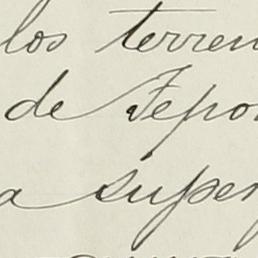 los terren
de Tepo
a super